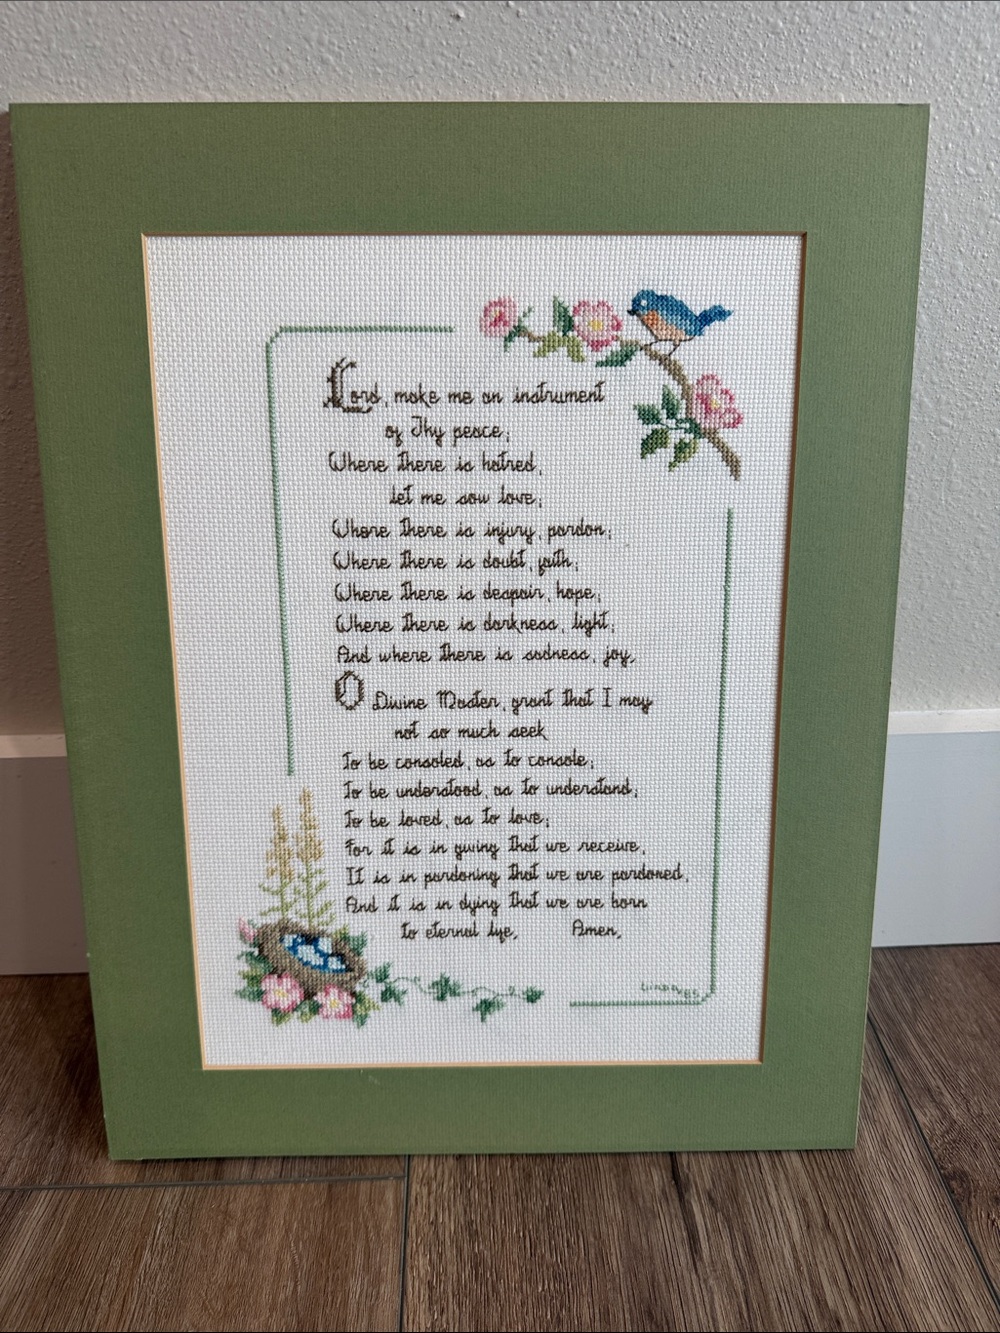 Lord, make me an instrument
of Thy peace;
Where there is hatred,
let me sow love;
Where there is injury, pardon;
Where there is doubt, faith;
Where there is despair, hope;
Where there is darkness, light;
And where there is sadness, joy.
O Divine Master, grant that I may
not so much seek
To be consoled, as to console;
To be understood, as to understand;
To be loved, as to love;
For it is in giving that we receive,
It is in pardoning that we are pardoned,
And it is in dying that we are born
to eternal life. Amen.